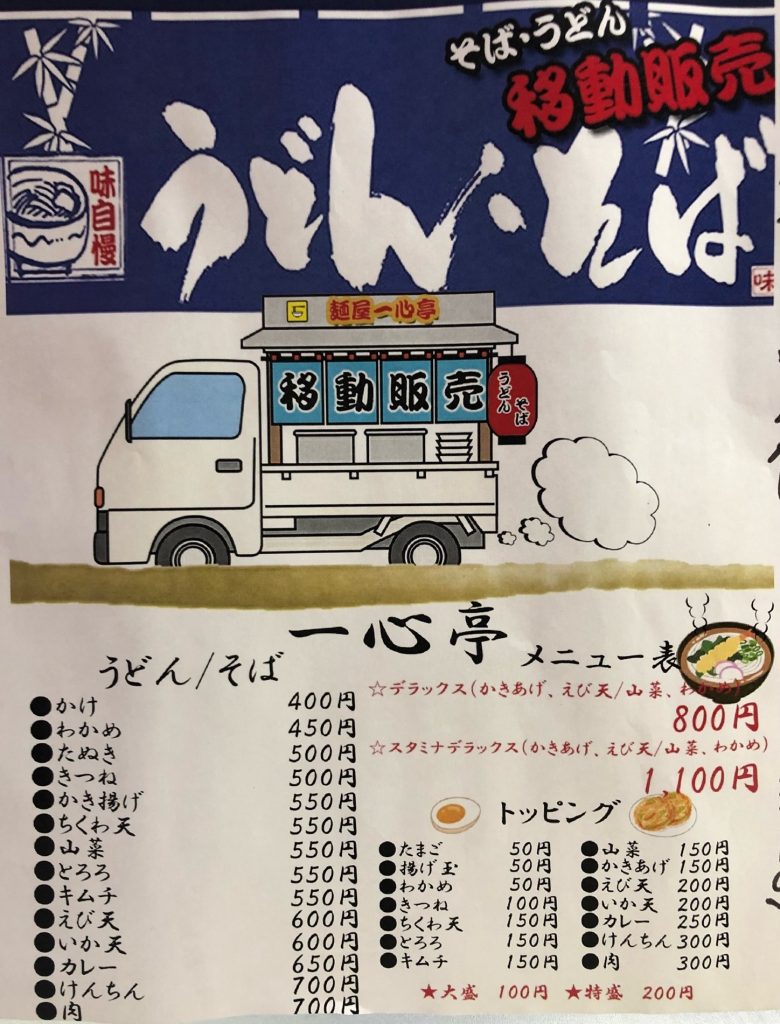 そば・うどん
移動販売
味自慢
うどん・そば
味
麺屋一心亭
移動販売
うどん
そば
一心亭 メニュー表
うどん/そば
●かけ 400円
●わかめ 450円
●たぬき 500円
●きつね 500円
●かき揚げ 550円
●ちくわ天 550円
●山菜 550円
●とろろ 550円
●キムチ 550円
●えび天 600円
●いか天 600円
●カレー 650円
●けんちん 700円
●肉 700円
☆デラックス(かきあげ、えび天/山菜、わかめ)
800円
☆スタミナデラックス(かきあげ、えび天/山菜、わかめ)
1,100円
トッピング
●たまご 50円
●揚げ玉 50円
●わかめ 50円
●きつね 100円
●ちくわ天 150円
●とろろ 150円
●キムチ 150円
●山菜 150円
●かきあげ 150円
●えび天 200円
●いか天 200円
●カレー 250円
●けんちん 300円
●肉 300円
★大盛 100円 ★特盛 200円